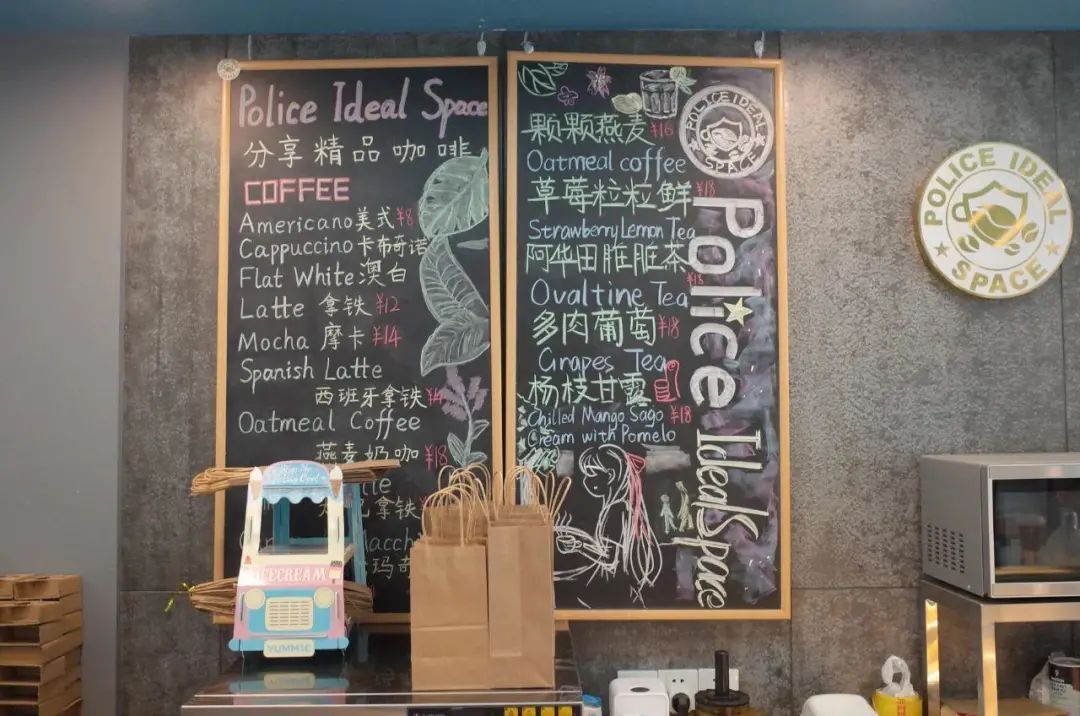 Police Ideal Space
分享精品咖啡
COFFEE
Americano 美式 ¥8
Cappuccino 卡布奇诺
Flat White 澳白
Latte 拿铁 ¥12
Mocha 摩卡 ¥14
Spanish Latte
西班牙拿铁
Oatmeal Coffee
燕麦奶咖 ¥18
拿铁
颗颗燕麦 ¥16
Oatmeal coffee
草莓粒粒鲜 ¥18
Strawberry Lemon Tea
阿华田脏脏茶
¥18
Ovaltine Tea
多肉葡萄 ¥18
Grapes Tea
杨枝甘露
Chilled Mango Sago ¥18
Cream with Pomelo
POLICE IDEAL
SPACE
Police Ideal Space
POLICE IDEAL
SPACE
ICECREAM
YUMMIE